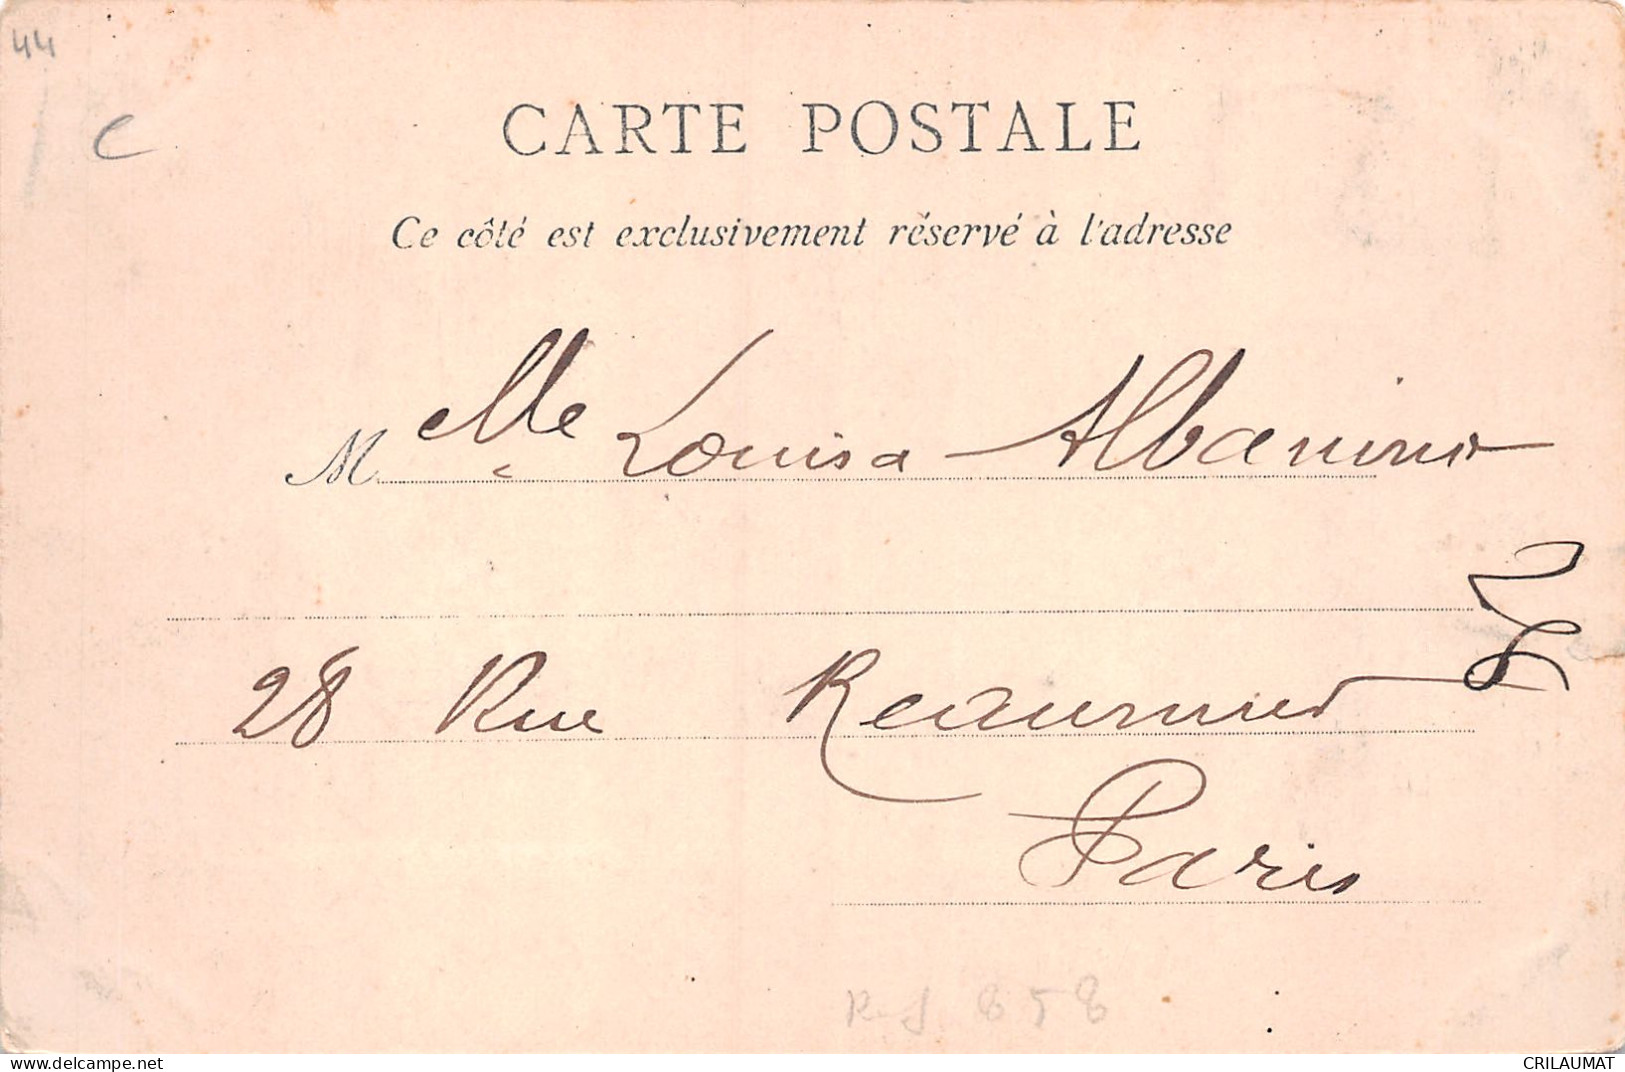 44
C
CARTE POSTALE
Ce côté est exclusivement réservé à l'adresse
Melle Louisa Albanino
28 Rue Reaumur
Paris
Ref 858
delcampe.net
CRILAUMAT